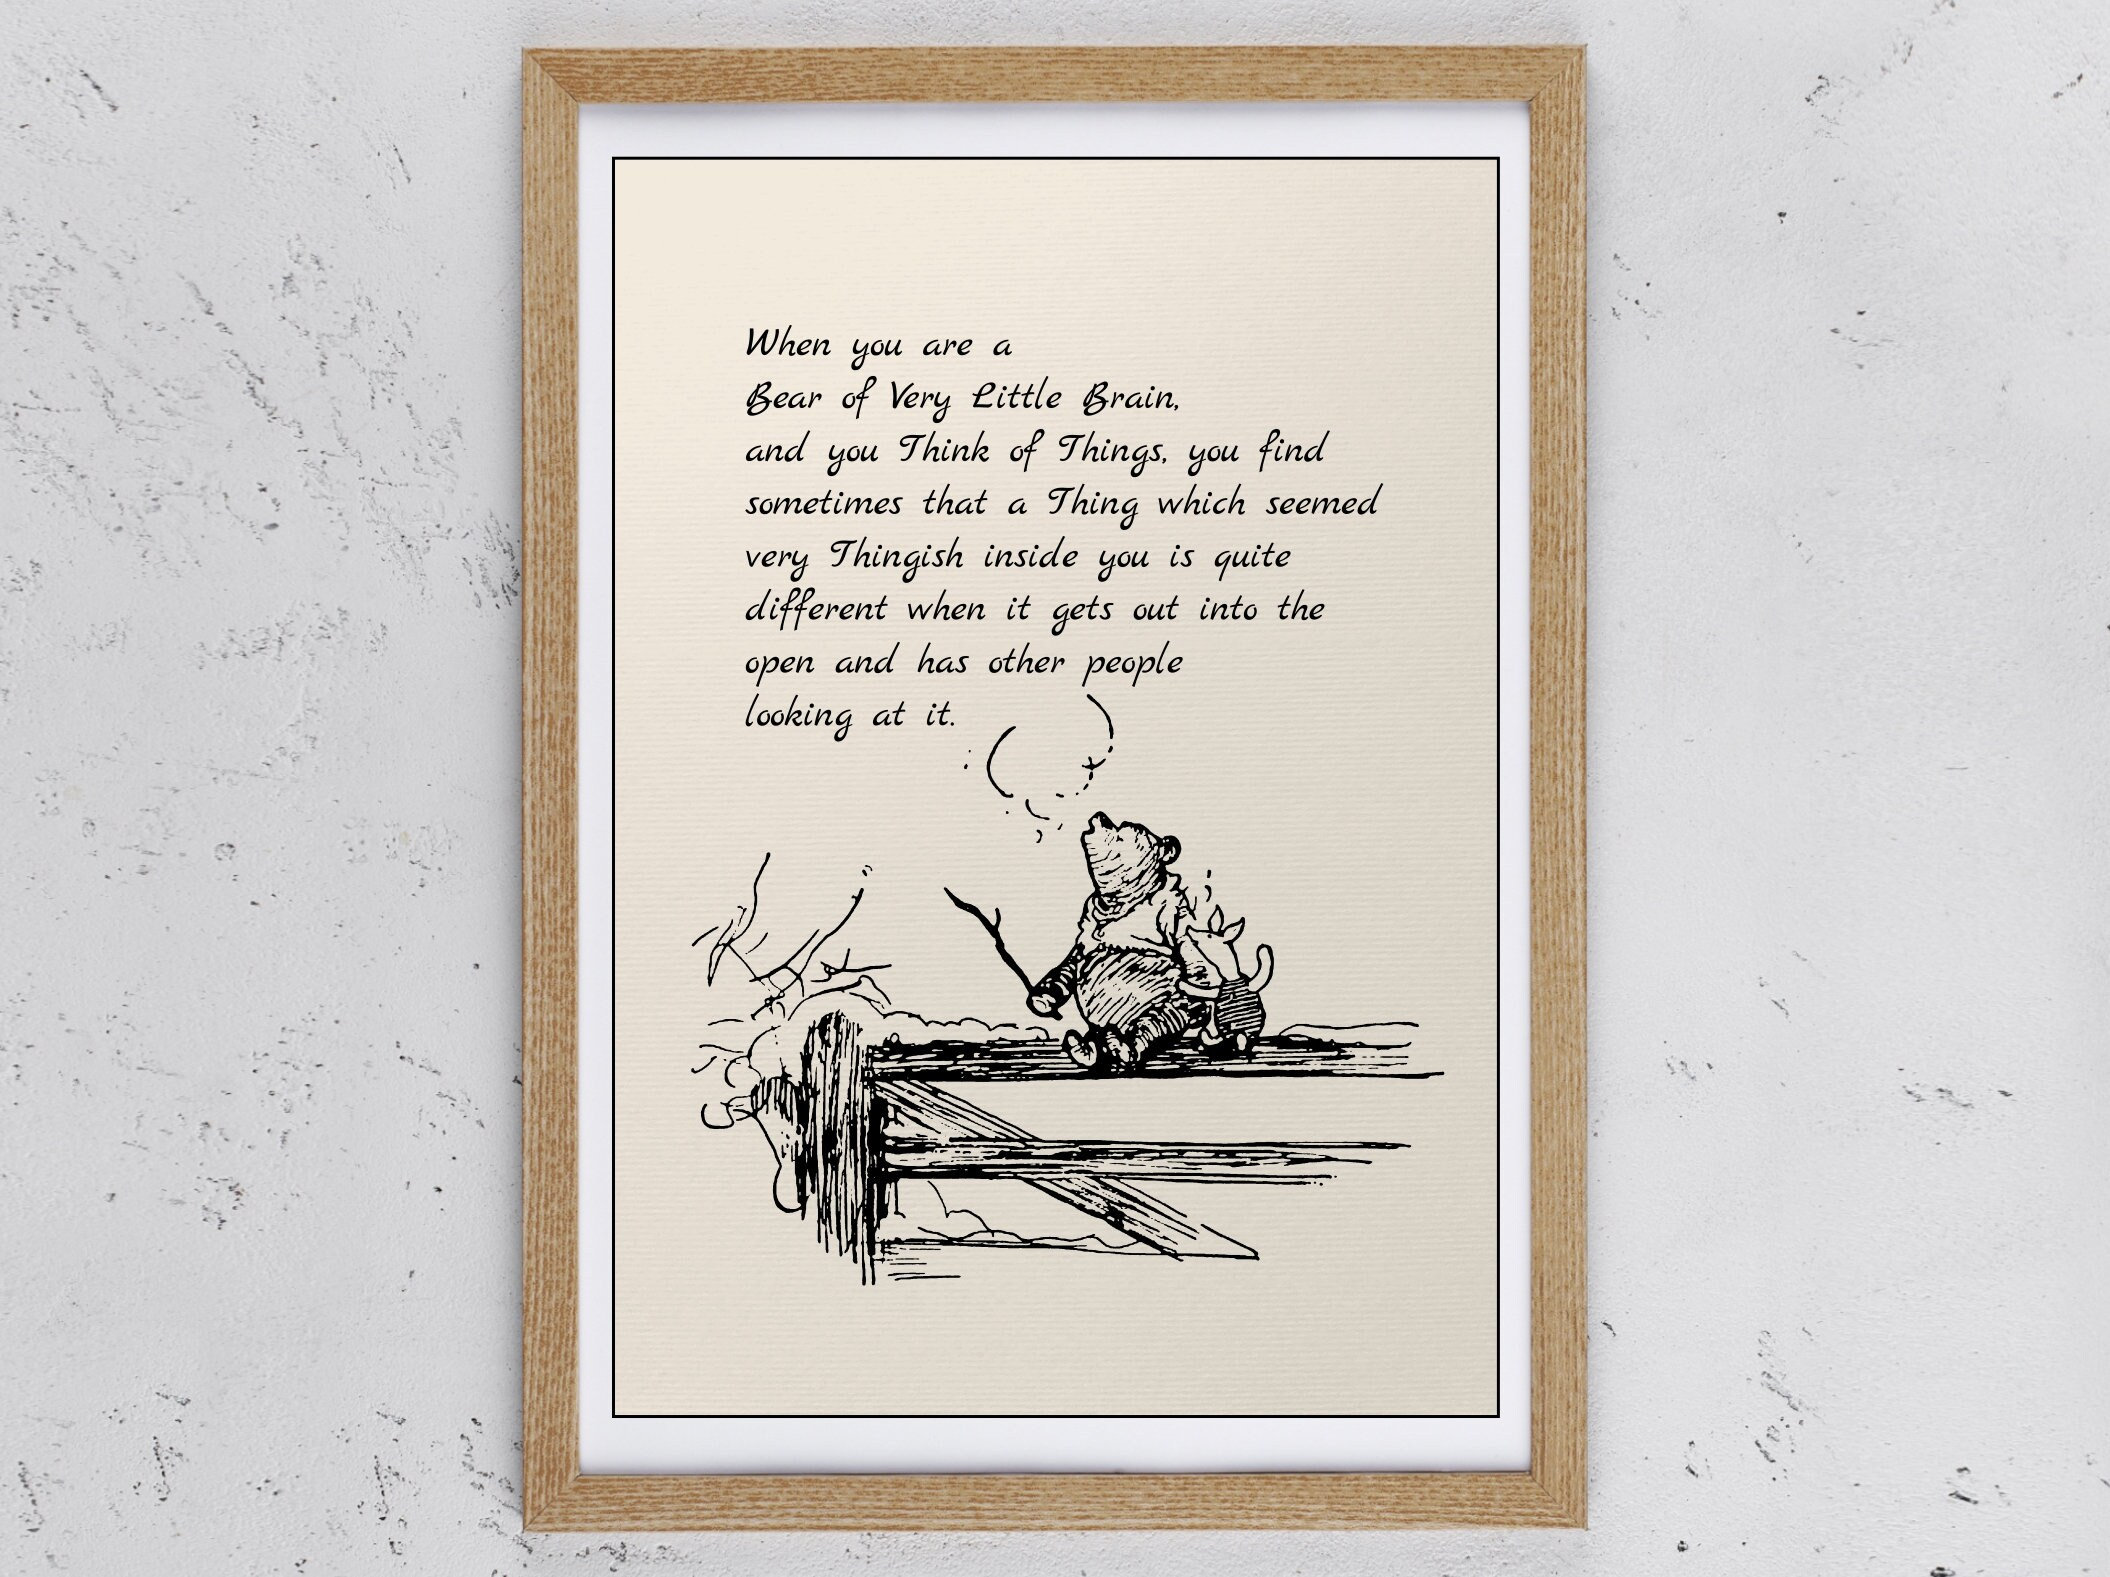 When you are a
Bear of Very Little Brain,
and you Think of Things, you find
sometimes that a Thing which seemed
very Thingish inside you is quite
different when it gets out into the
open and has other people
looking at it.